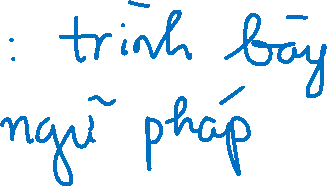 : trình bày
ngữ pháp